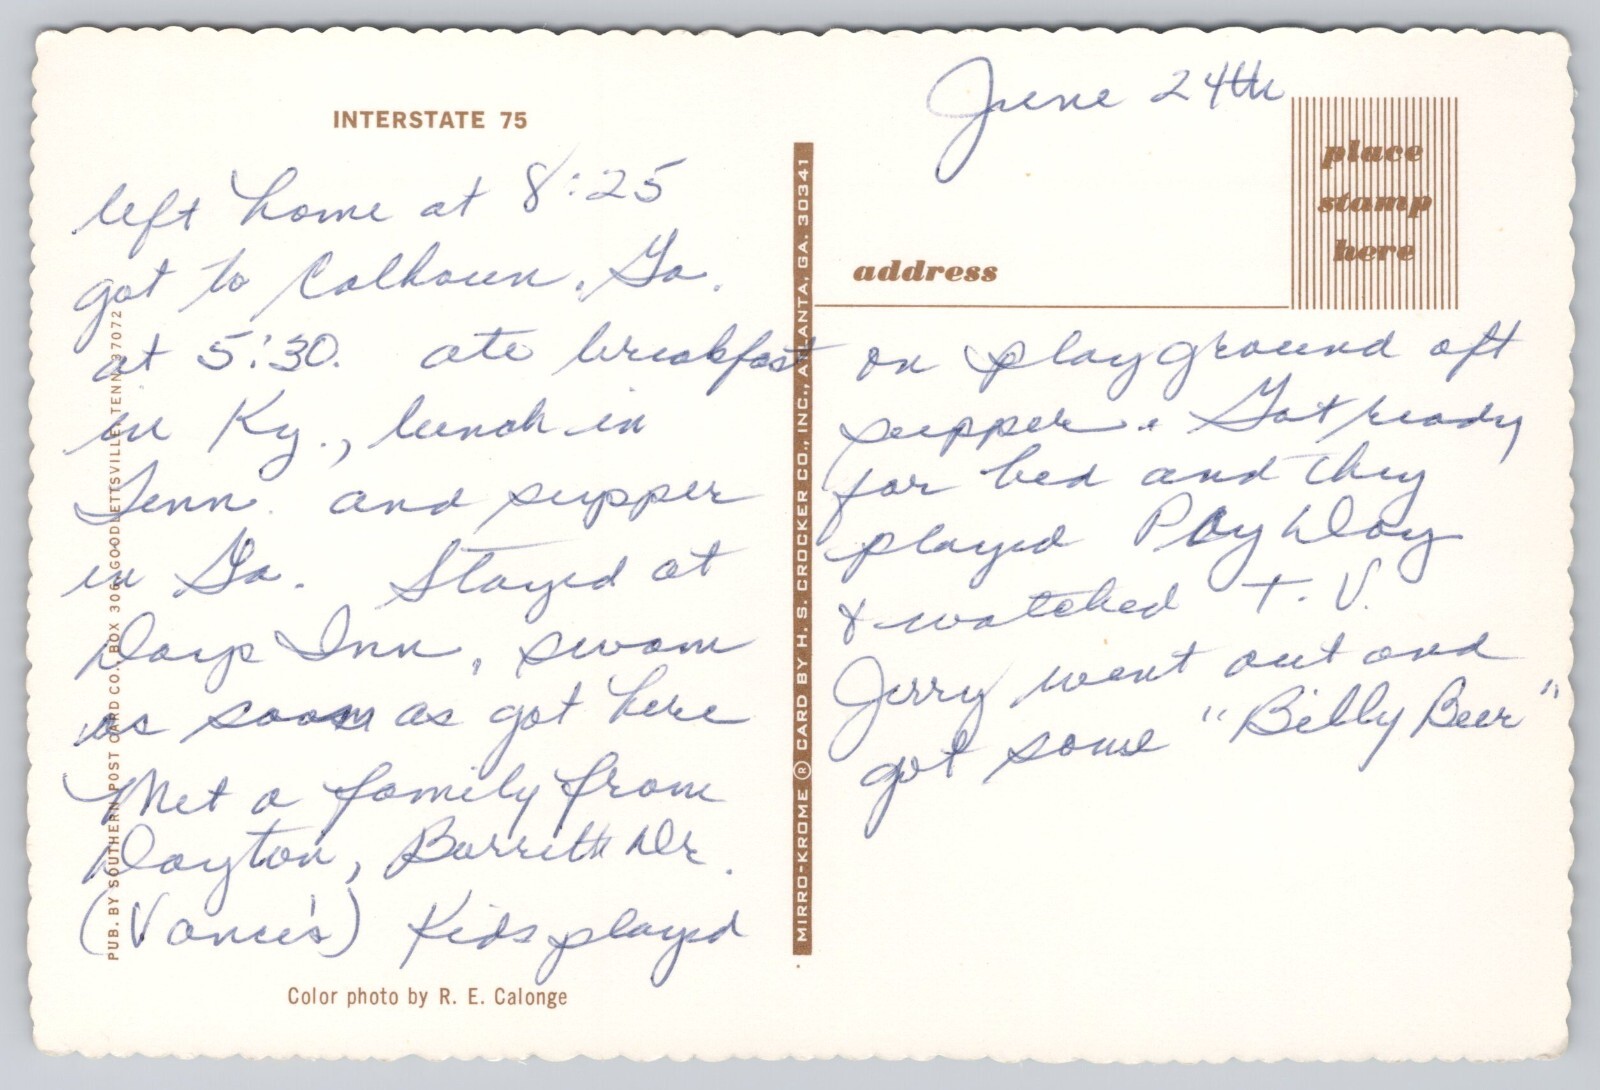 INTERSTATE 75
left home at 8:25
got to Calhoun, Ga.
at 5:30. ate breakfast
in Ky., lunch in
Tenn. and supper
in Ga. Stayed at
Days Inn, swam
as soon as got here
Met a family from
Dayton, Burritt Dr.
(Vance's) Kids played
Color photo by R. E. Calonge
PUB. BY SOUTHERN POST CARD CO., BOX 306, GOODLETTSVILLE, TENN. 37072
MIRRO-KROME ® CARD BY H. S. CROCKER CO., INC., ATLANTA, GA. 30341
June 24th
place
stamp
here
address
on playground aft
supper. Got ready
for bed and they
played Pay Day
& watched T.V.
Jerry went out and
got some "Billy Beer"